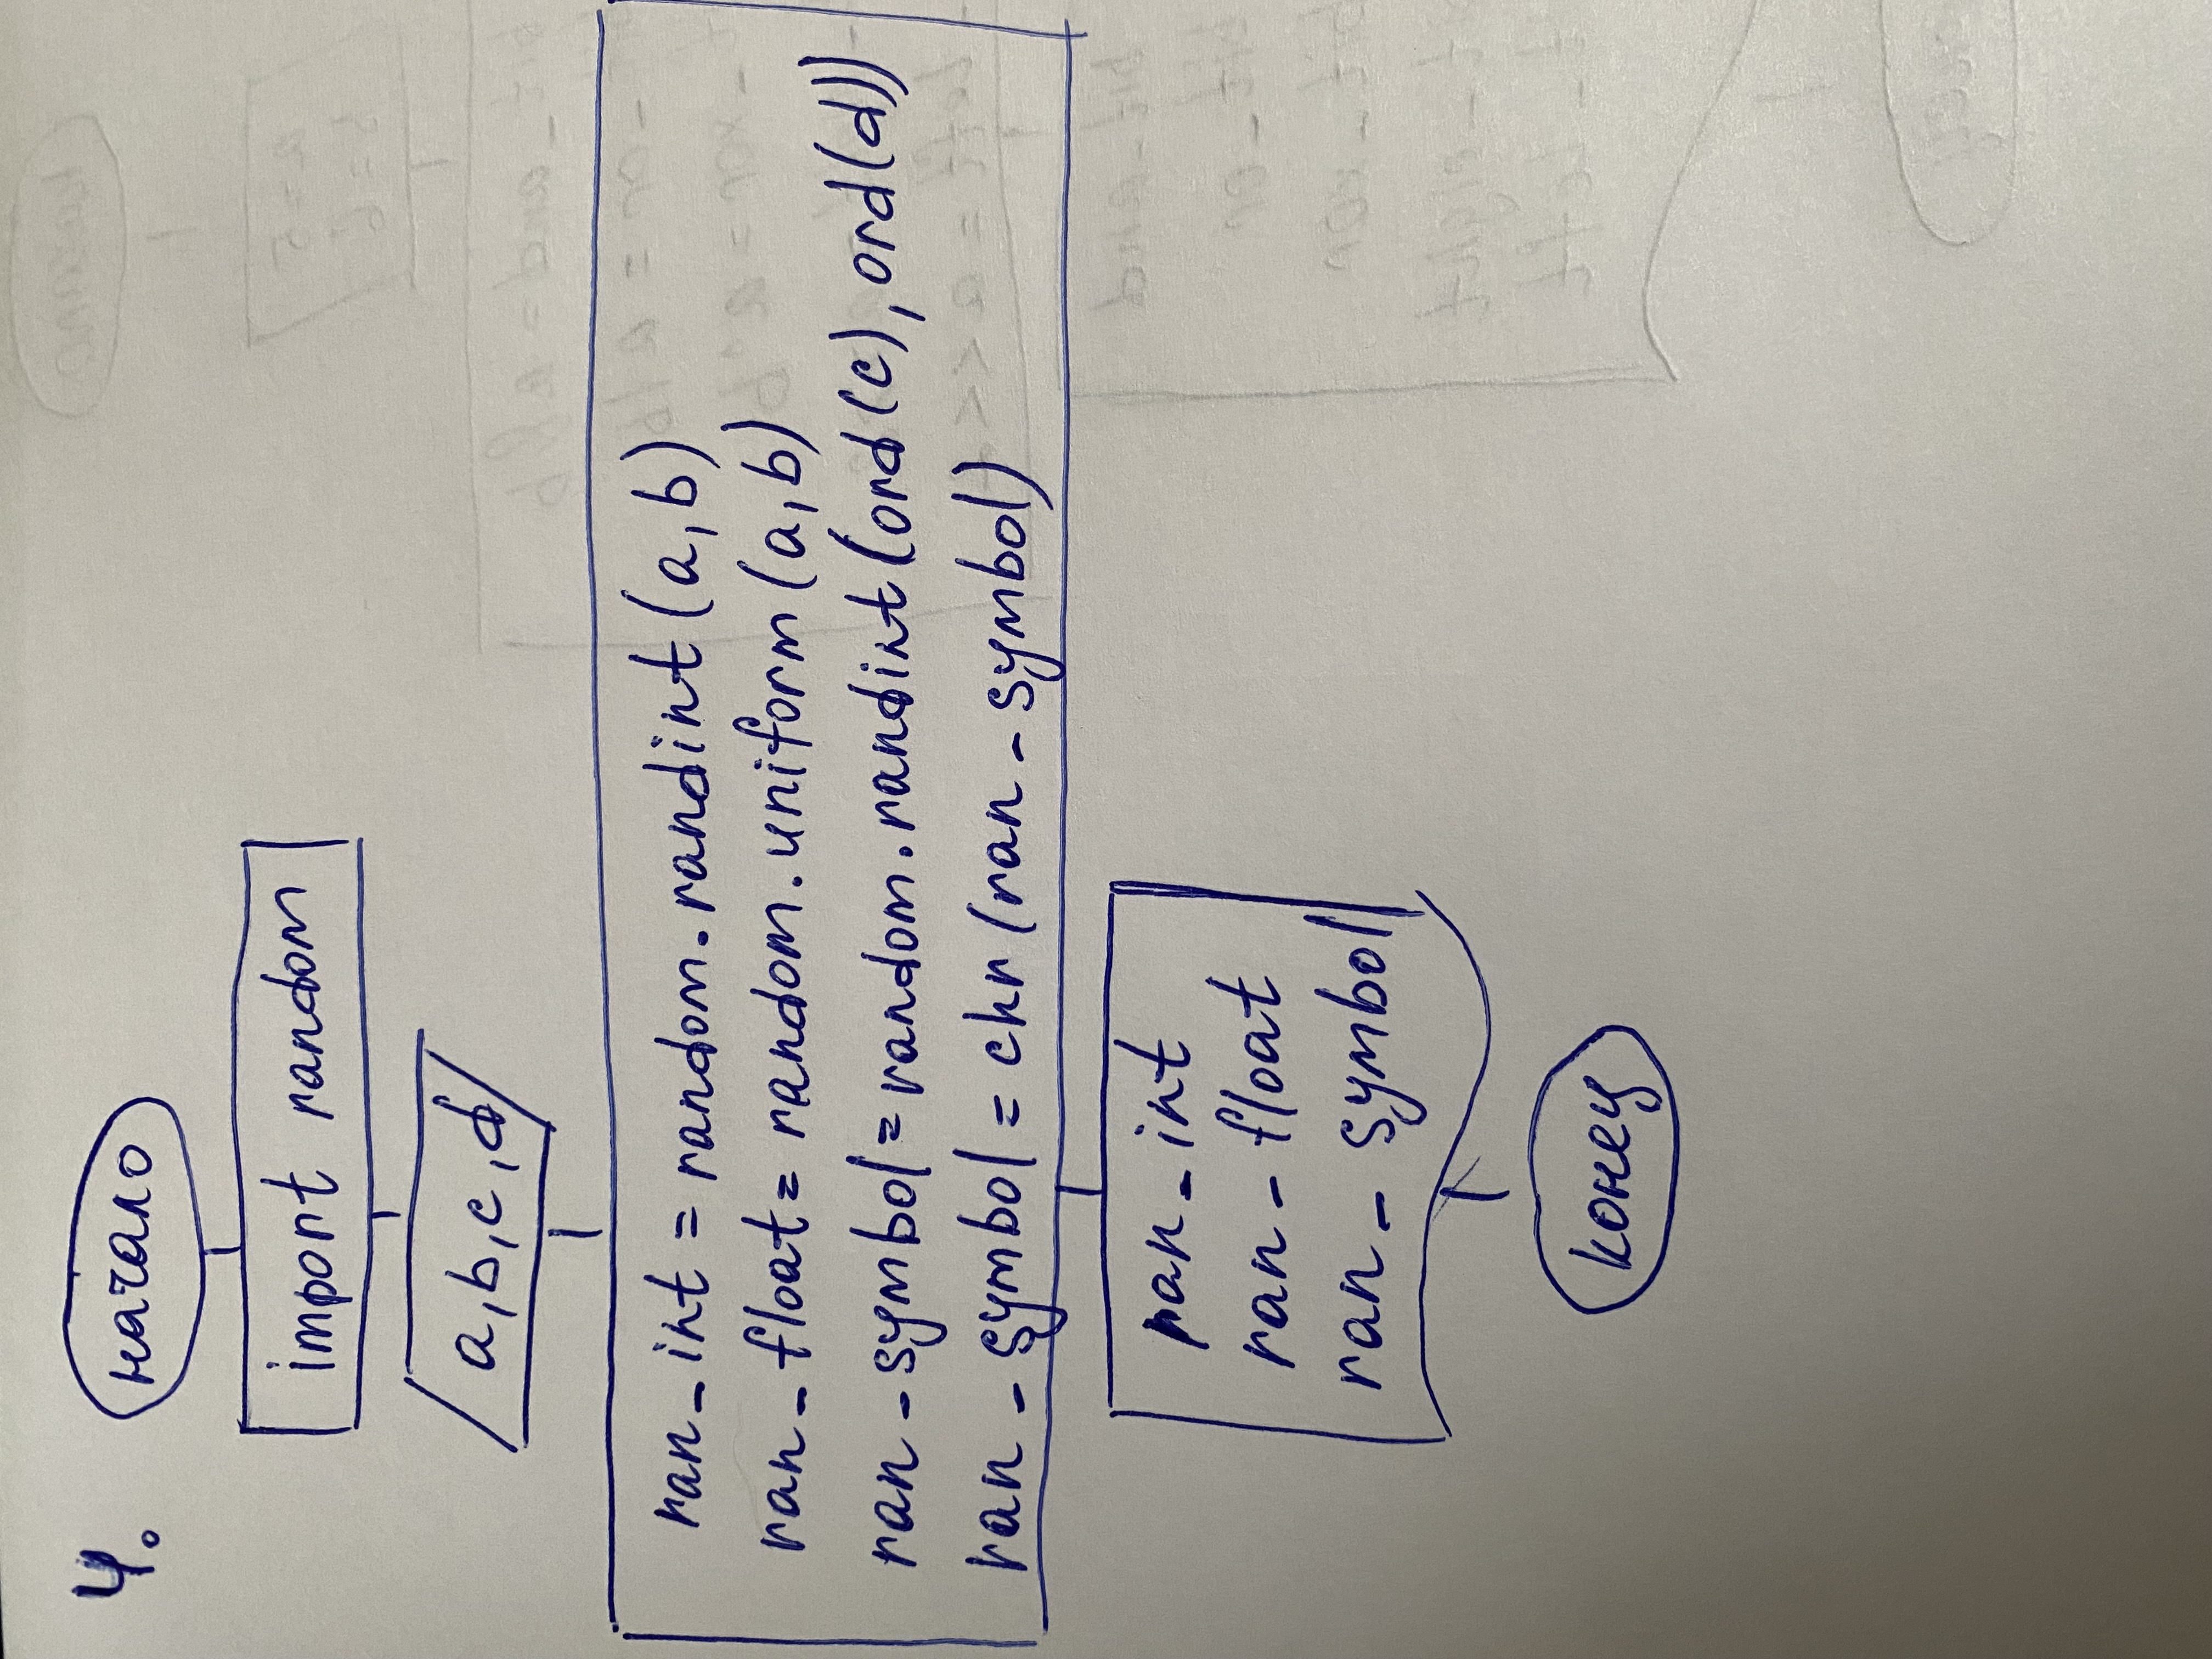 4.
начало
import random
a, b, c, d
ran_int = random.randint(a, b)
ran_float = random.uniform(a, b)
ran_symbol = random.randint(ord(c), ord(d))
ran_symbol = chr(ran_symbol)
ran_int
ran_float
ran_symbol
конец